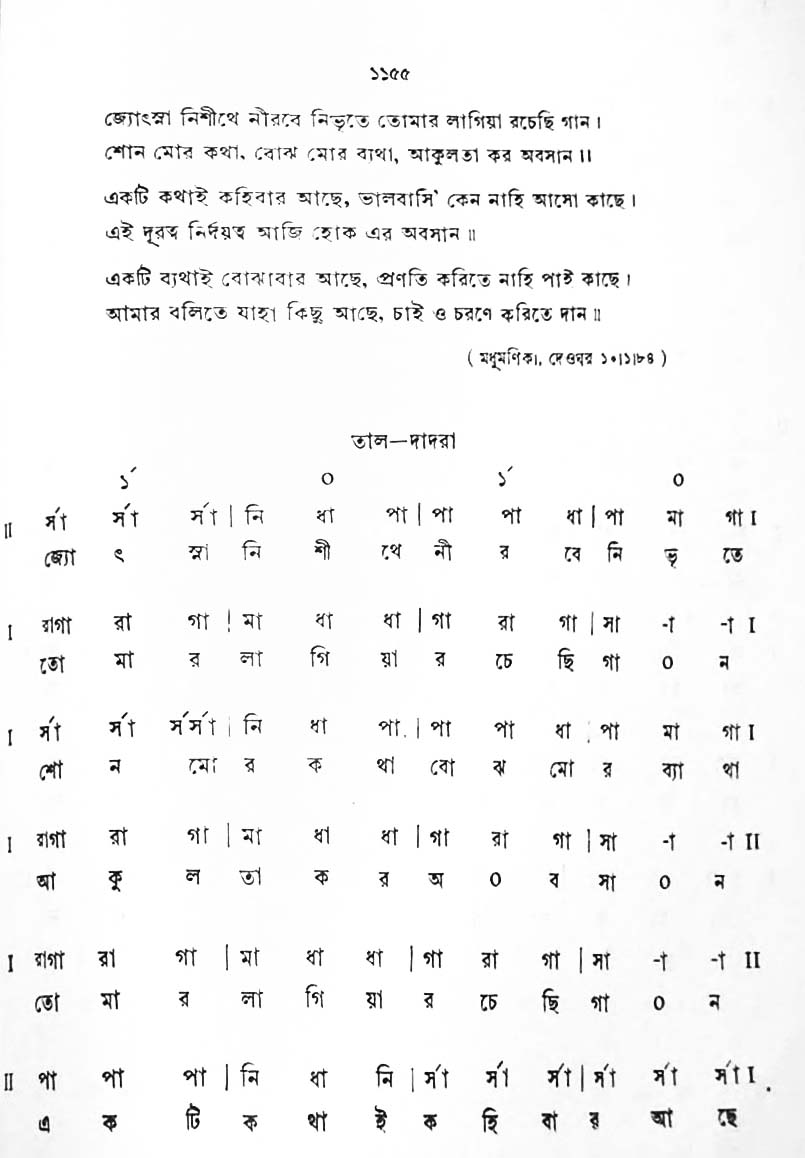 ১১৫৫
জ্যোৎস্না নিশীথে নীরবে নিভৃতে তোমার লাগিয়া রচেছি গান।
শোন মোর কথা, বোঝ মোর ব্যথা, আকুলতা কর অবসান॥
একটি কথাই কহিবার আছে, ভালবাসি' কেন নাহি আসো কাছে।
এই দূরত্ব নির্দয়ত্ব আজি হোক এর অবসান॥
একটি ব্যথাই বোঝাবার আছে, প্রণতি করিতে নাহি পাই কাছে।
আমার বলিতে যাহা কিছু আছে, চাই ও চরণে করিতে দান॥
( মধুমণিকা, দেওঘর ১০।১।৮৪ )
তাল—দাদরা
১´ ০ ১´ ০
II র্সা র্সা র্সা | নি ধা পা | পা পা ধা | পা মা গা I
জ্যো ৎ স্না নি শী থে নী র বে নি ভৃ তে
I রাগা রা গা | মা ধা ধা | গা রা গা | সা -া -া I
তো মা র লা গি য়া র চে ছি গা ০ ন
I র্সা র্সা র্সর্সা | নি ধা পা | পা পা ধা | পা মা গা I
শো ন মো র ক থা বো ঝ মো র ব্যা থা
I রাগা রা গা | মা ধা ধা | গা রা গা | সা -া -া II
আ কু ল তা ক র অ ০ ব সা ০ ন
I রাগা রা গা | মা ধা ধা | গা রা গা | সা -া -া II
তো মা র লা গি য়া র চে ছি গা ০ ন
II পা পা পা | নি ধা নি | র্সা র্সা র্সা | র্সা র্সা র্সা I
এ ক টি ক থা ই ক হি বা র আ ছে